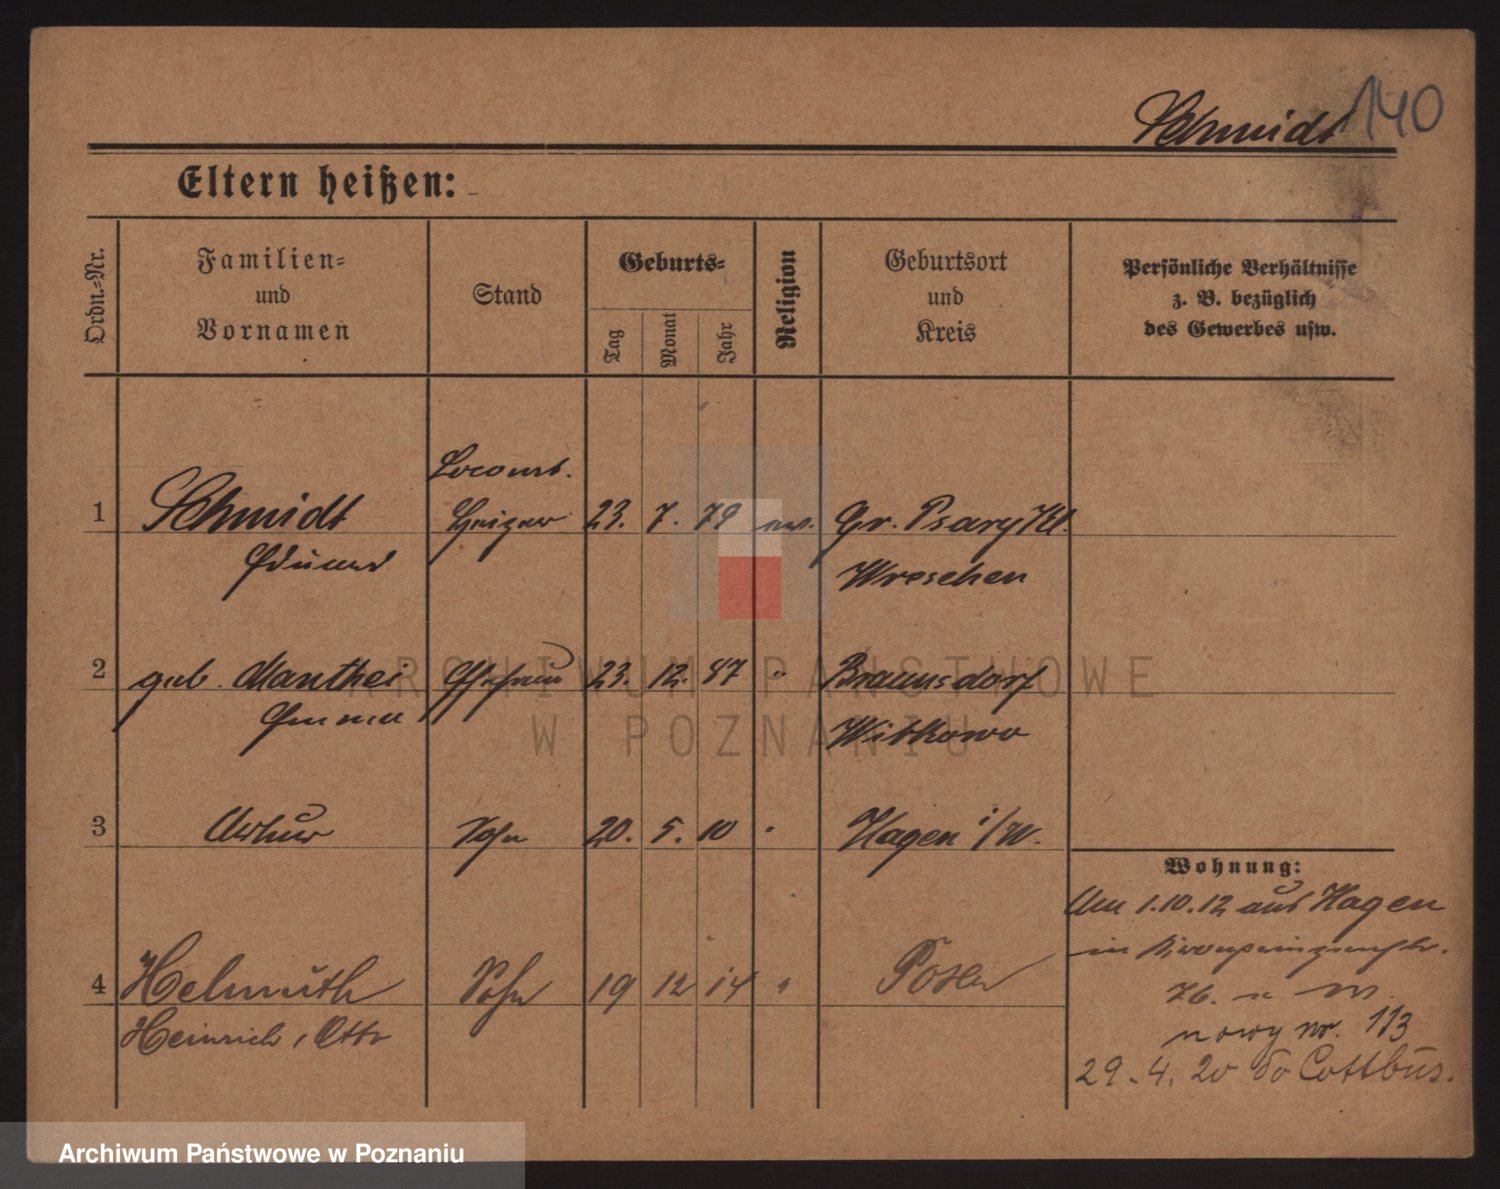 Schmidt 140
Eltern heißen:
Ordn.-Nr.
Familien-
und
Vornamen
Stand
Geburts-
Tag
Monat
Jahr
Religion
Geburtsort
und
Kreis
Persönliche Verhältnisse
z. B. bezüglich
des Gewerbes usw.
Locomt.
1 Schmidt Heizer 23. 7. 79 ev. Gr. Psary Kr.
Eduard Wreschen
2 geb. Manthei Ehefrau 23. 12. 87 " Braunsdorf
Emma Witkowo
3 Arthur Sohn 20. 5. 10 " Hagen i/W.
Wohnung:
Am 1.10.12 aus Hagen
in
4 Helmuth Sohn 19 12 14 " Posen
Heinrich, Otto
nowy nr. 113
29. 4. 20 do Cottbus.
ARCHIWUM PAŃSTWOWE
W POZNANIU
Archiwum Państwowe w Poznaniu